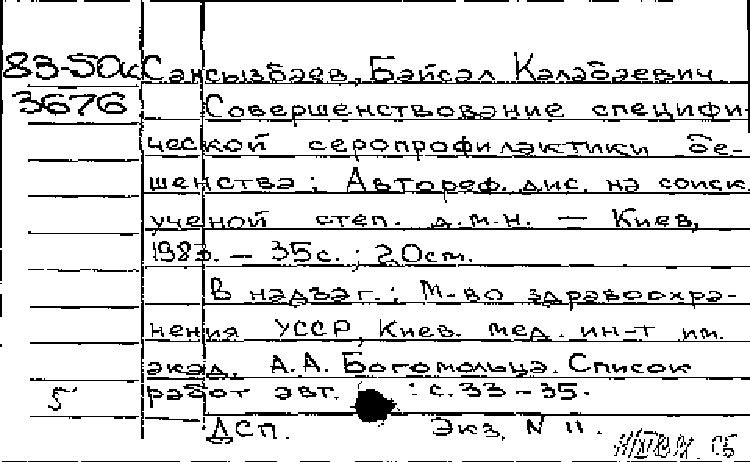 83-50к Сансызбаев, Байсал Калабаевич
3676 Совершенствование специфи-
ческой серопрофилактики бе-
шенства: Автореф. дис. на соиск.
ученой степ. д.м.н. — Киев,
— 35 с.; 20 см.
В надзаг.: М-во здравоохра-
нения УССР, Киев. мед. ин-т им.
акад. А.А. Богомольца. Список
5 работ авт.: с. 33-35.
ДСП. Экз. N 11.